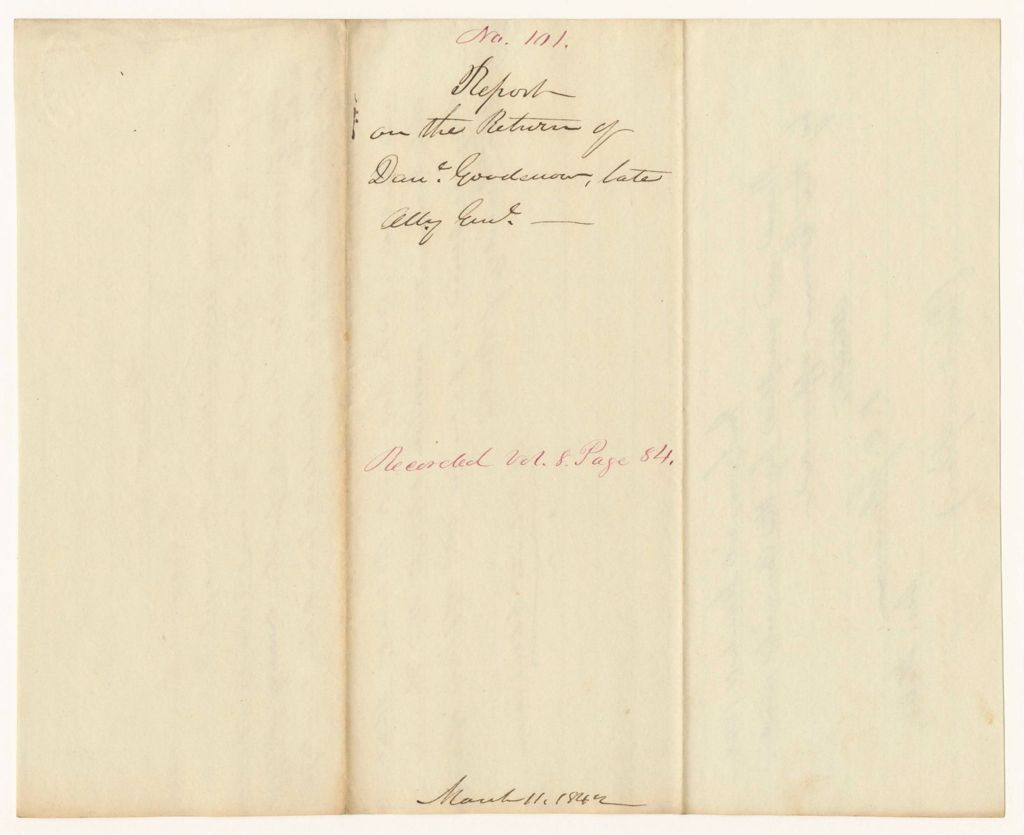 No. 101.
Report
on the Return of
Danl. Goodenow, late
Atty Genl. —
Recorded Vol. 8. Page 84.
March 11. 1842